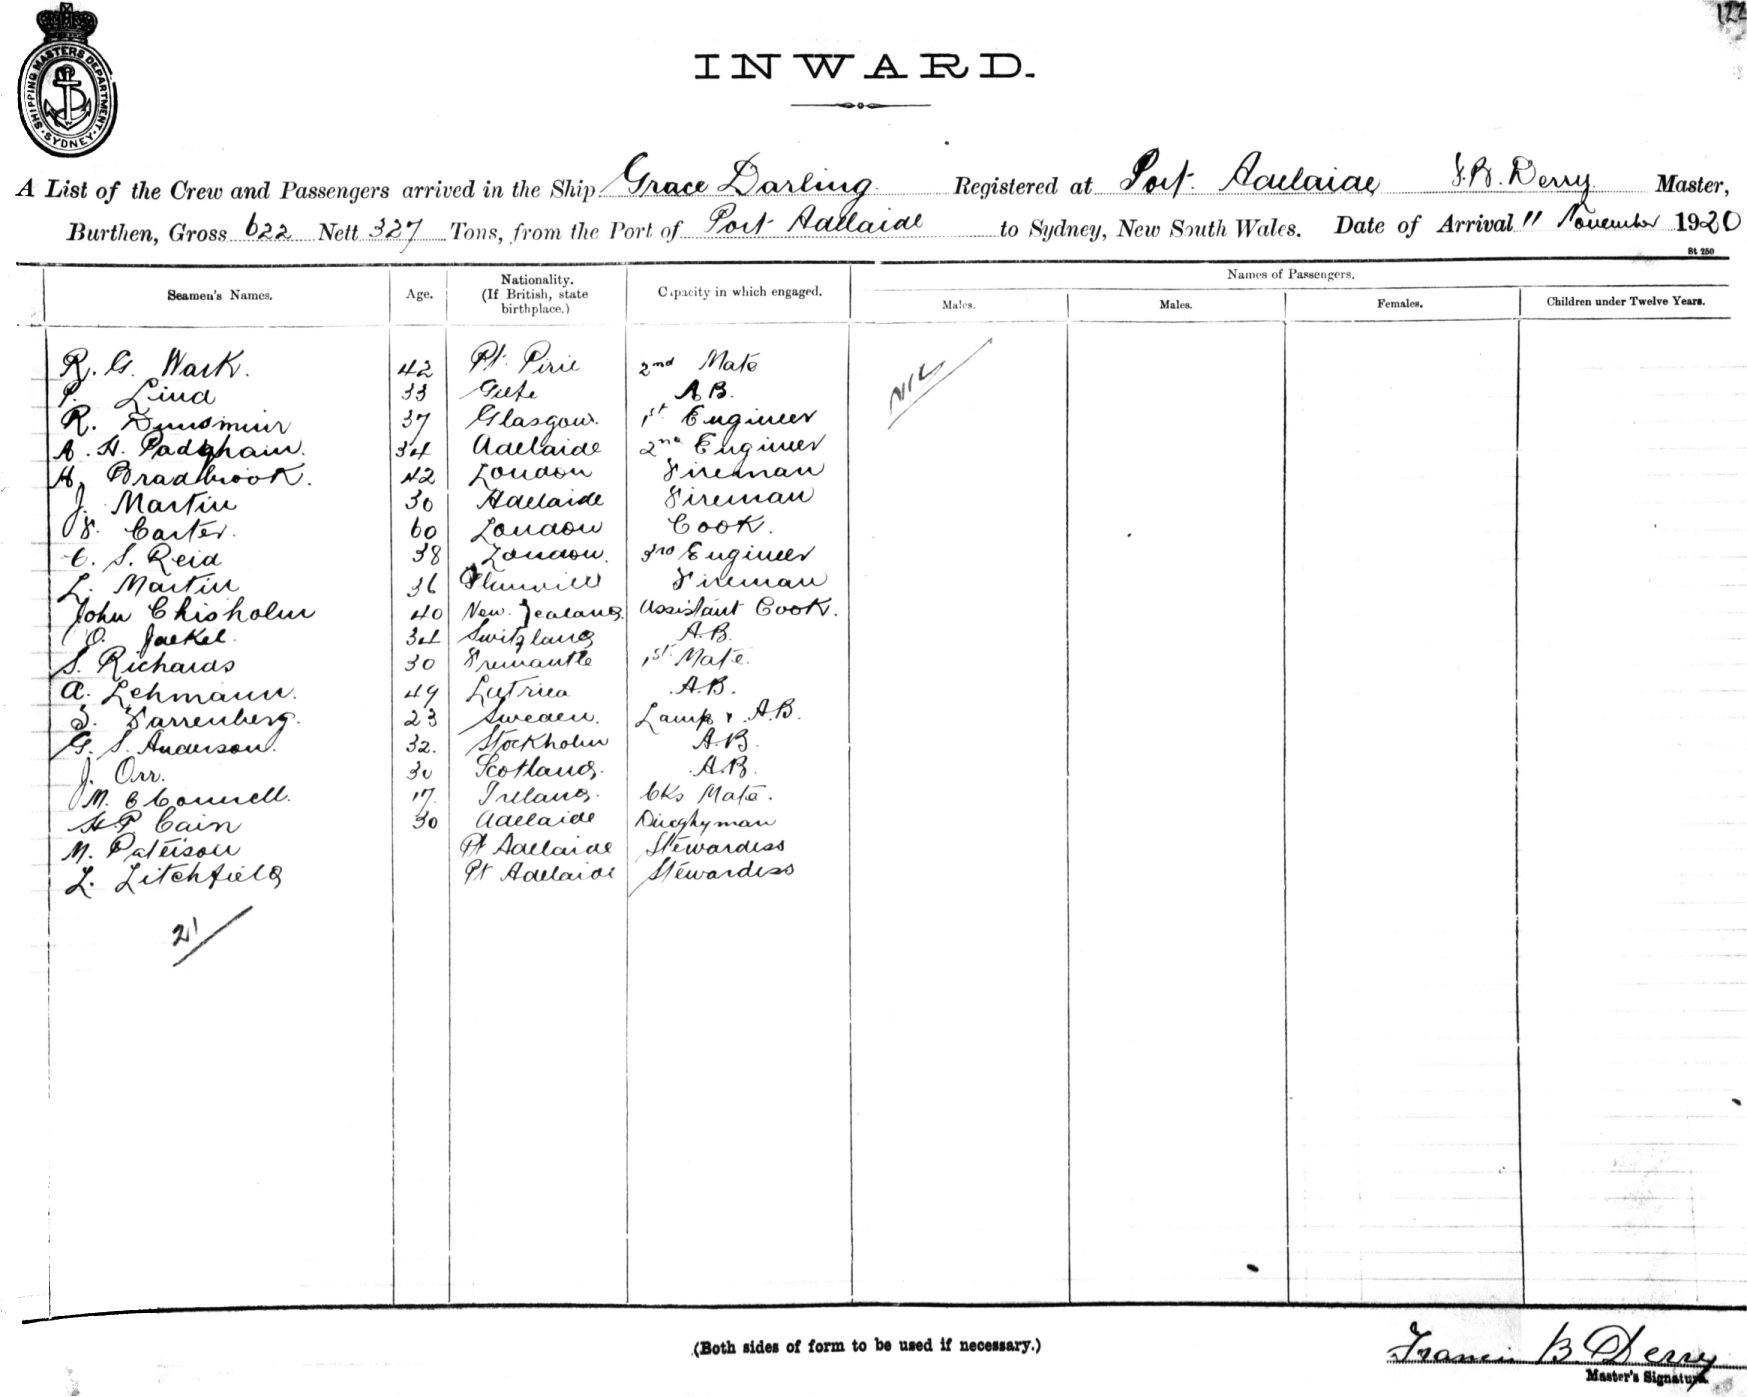 122
SHIPPING MASTERS DEPARTMENT
SYDNEY
INWARD.
A List of the Crew and Passengers arrived in the Ship Grace Darling Registered at Port Adelaide F. B. Derry Master,
Burthen, Gross 622 Nett 327 Tons, from the Port of Port Adelaide to Sydney, New South Wales. Date of Arrival 11 November 1920
St 250
Names of Passengers.
Seamen's Names. Age. Nationality. (If British, state birthplace.) Capacity in which engaged. Males. Males. Females. Children under Twelve Years.
R. G. Wark. 42 Pt. Pirie 2nd Mate NIL
P. Lind 33 A B.
R. Dunsmuir 37 Glasgow. 1st Engineer
A. H. Padgham. 34 Adelaide 2nd Engineer
H. Bradbrook. 42 London Fireman
J. Martin 30 Adelaide Fireman
F. Carter. 60 London Cook.
C. S. Reid 38 London. 3rd Engineer
L. Martin 36 Fireman
John Chisholm 40 New Zealand Assistant Cook.
O. Jaekel. 34 Switzland A.B.
S. Richards 30 Fremantle 1st Mate.
A. Lehmann. 49 A.B.
S. Farrenberg. 23 Sweden. Lamps & A.B.
G. S. Anderson. 32. Stockholm A.B.
J. Orr. 30 Scotland. A.B.
M. O'Connell. 17. Ireland. Cks Mate.
H. P Cain 30 Adelaide Dinghyman
M. Paterson Pt Adelaide Stewardess
L. Litchfield Pt Adelaide Stewardess
21
(Both sides of form to be used if necessary.)
Francis B. Derry
Master's Signature.